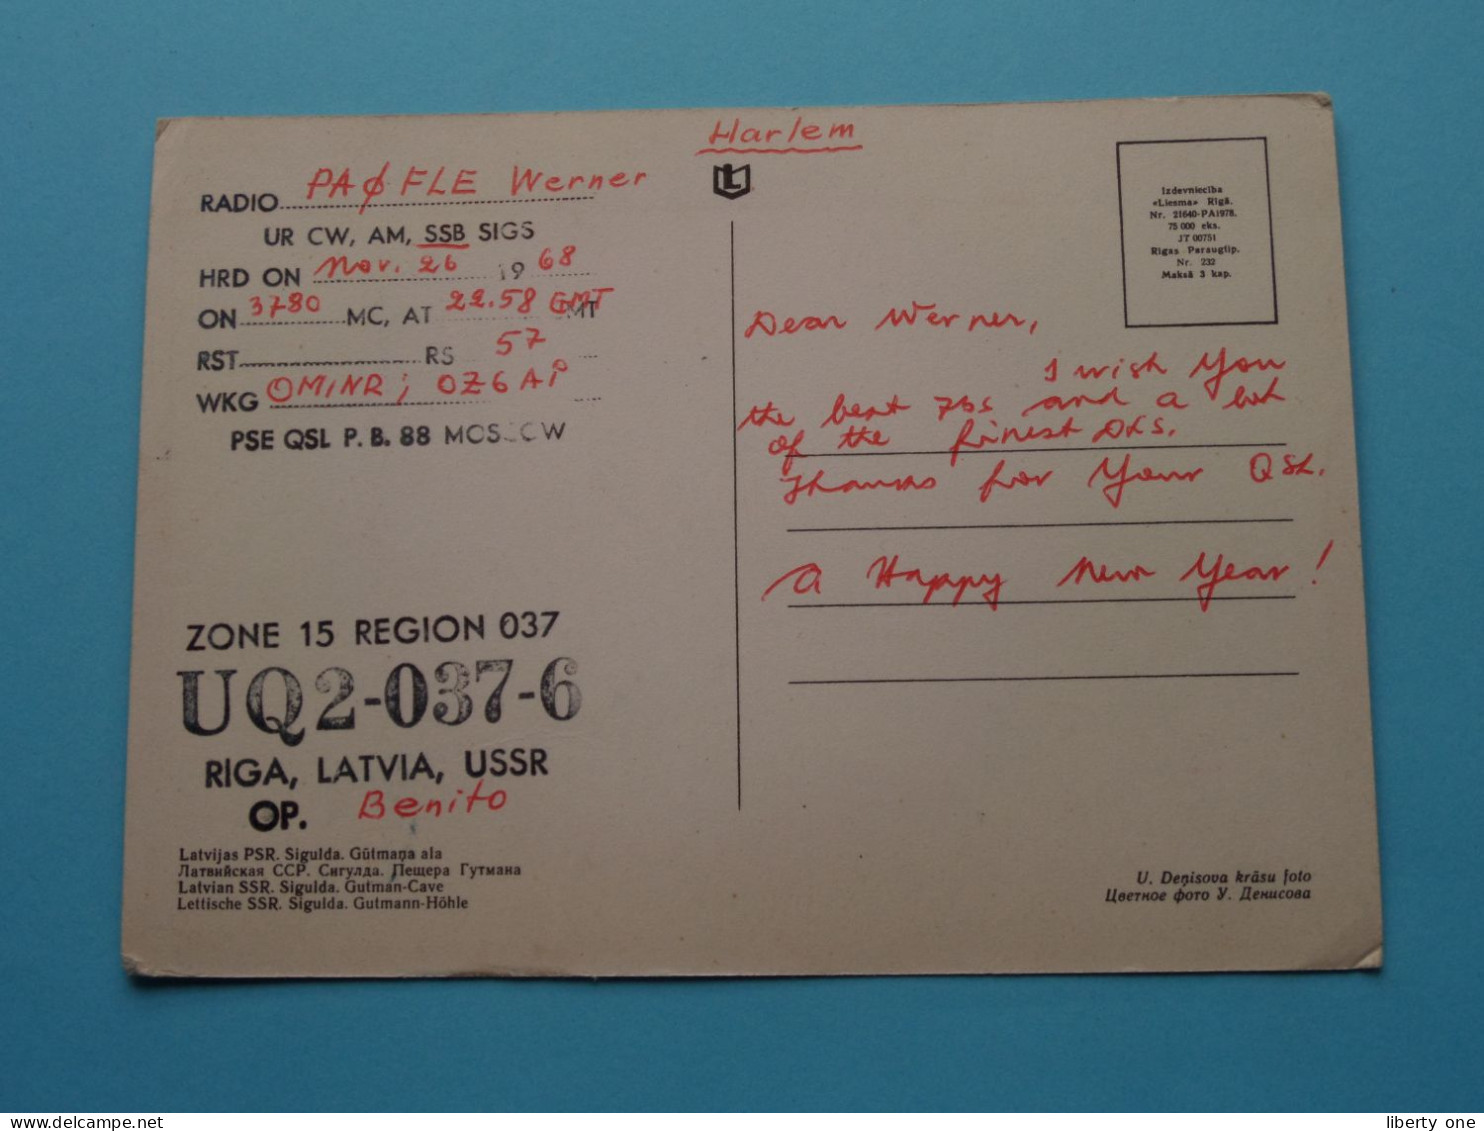 Harlem
RADIO PAØFLE Werner
UR CW, AM, SSB SIGS
HRD ON Nov. 26 1968
ON 3780 MC, AT 22.58 GMT
RST RS 57
WKG OM1NR; OZ6AP
PSE QSL P. B. 88 MOSCOW
ZONE 15 REGION 037
UQ2-037-6
RIGA, LATVIA, USSR
OP. Benito
Latvijas PSR. Sigulda. Gūtmaņa ala
Латвийская ССР. Сигулда. Пещера Гутмана
Latvian SSR. Sigulda. Gutman-Cave
Lettische SSR. Sigulda. Gutmann-Höhle
Izdevniecība
«Liesma» Rīgā.
Nr. 21640-PA1978.
75 000 eks.
JT 00751
Rīgas Paraugtip.
Nr. 232
Maksā 3 kap.
Dear Werner,
I wish You
the best 73s and a lot
of the finest DXs.
Thanks for Your QSL.
A Happy New Year!
U. Deņisova krāsu foto
Цветное фото У. Денисова
liberty one